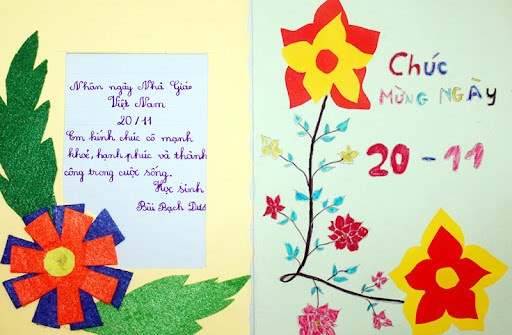 Nhân ngày Nhà Giáo
Việt Nam
20/11
Em kính chúc cô mạnh
khoẻ, hạnh phúc và thành
công trong cuộc sống.
Học sinh
Bùi Bạch
Chúc
MỪNG NGÀY
20 - 11